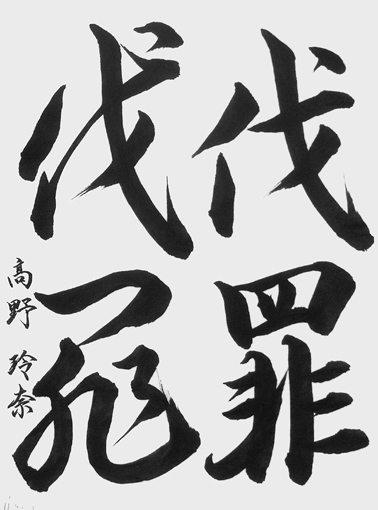 伐罪
伐罪
高野玲奈